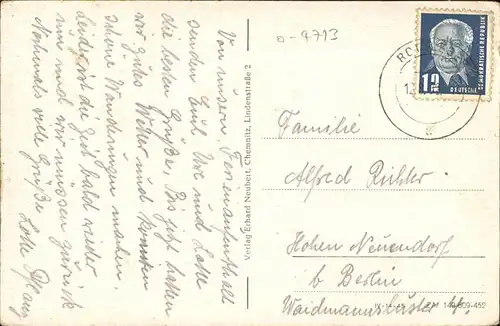 o-9713
Von unserm Ferienaufenthalt
senden Euch Uwe und Lotte
die besten Grüße. Bis jetzt hatten
wir gutes Wetter und konnten
schöne Wanderungen machen.
Leider ist die Zeit bald wieder
um und wir müssen zurück
Nochmals viele Grüße Lotte
Verlag Erhard Neubert, Chemnitz, Lindenstraße 2
DEUTSCHE DEMOKRATISCHE REPUBLIK
12
Familie
Alfred Richter
Hohen Neuendorf
b Berlin
Waidmannsluster